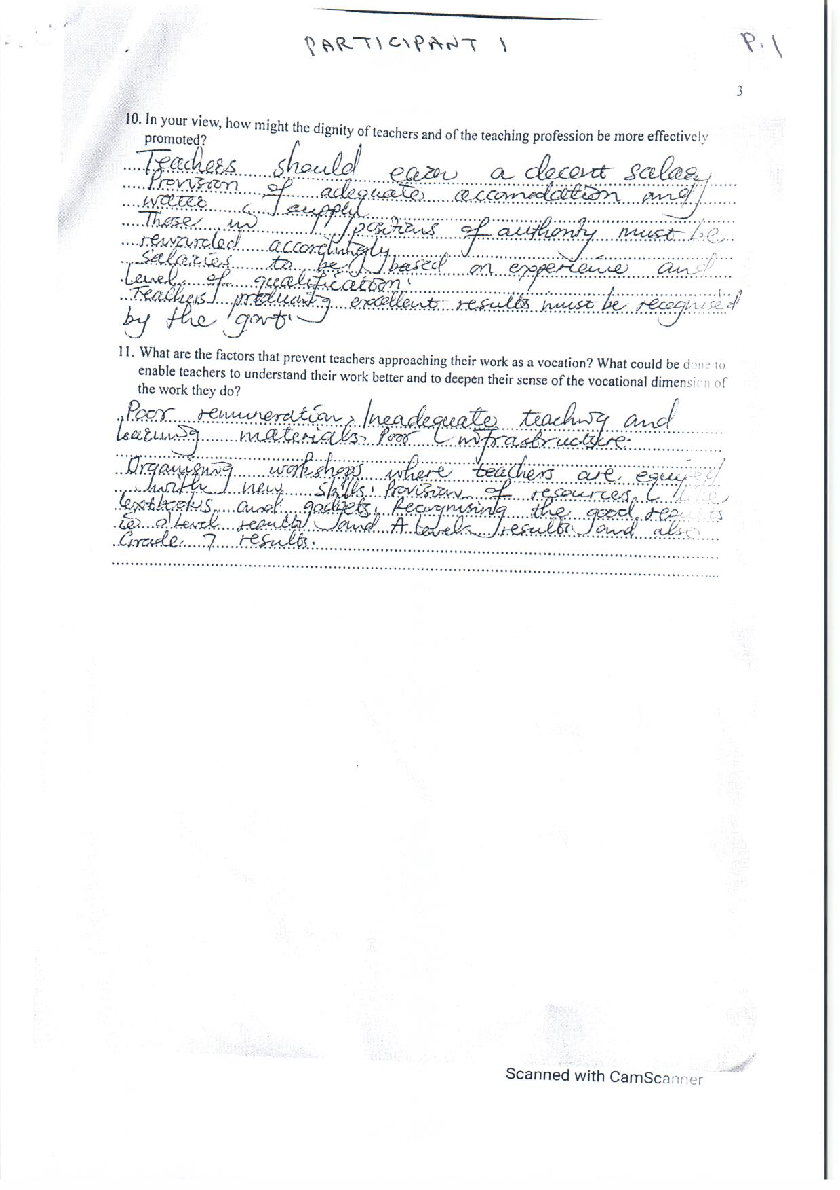 PARTICIPANT 1
P.1
3
10. In your view, how might the dignity of teachers and of the teaching profession be more effectively
promoted?
Teachers should earn a decent salary
Provision of adequate accomodation and
water supply
Those in positions of authority must be
rewarded accordingly
Salaries to be based on experience and
level of qualification.
Teachers producing excellent results must be recognised
by the govt.
11. What are the factors that prevent teachers approaching their work as a vocation? What could be done to
enable teachers to understand their work better and to deepen their sense of the vocational dimension of
the work they do?
Poor remuneration, Inadequate teaching and
learning materials. Poor infrastructure.
Organising workshops where teachers are equiped
with new skills. Provision of resources like
textbooks and gadgets. Recognising the good results
ie O level results and A level results and also
Grade 7 results.
Scanned with CamScanner